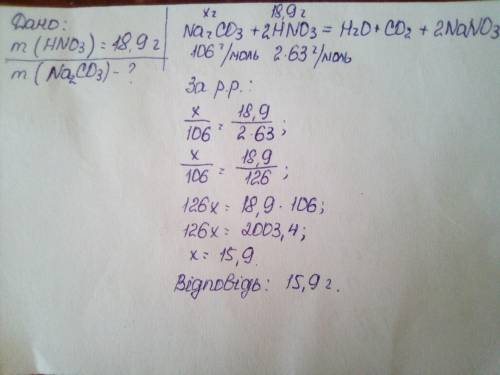 Дано:
m (HNO3) = 18,9 г
m (Na2CO3) - ?
x г 18,9 г
Na2CO3 + 2HNO3 = H2O + CO2 + 2NaNO3
106 г/моль 2·63 г/моль
За р.р.:
x/106 = 18,9/2·63;
x/106 = 18,9/126;
126x = 18,9·106;
126x = 2003,4;
x = 15,9.
Відповідь: 15,9 г.